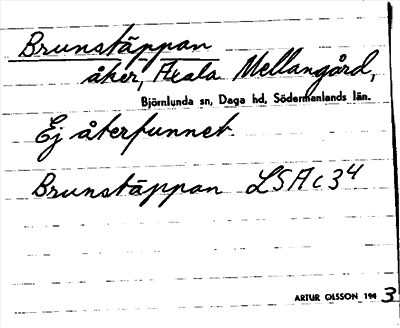 Brunstäppan
åker, Axala Mellangård,
Björnlunda sn, Daga hd, Södermanlands län.
Ej återfunnet.
Brunstäppan LSA C 34
ARTUR OLSSON 1943